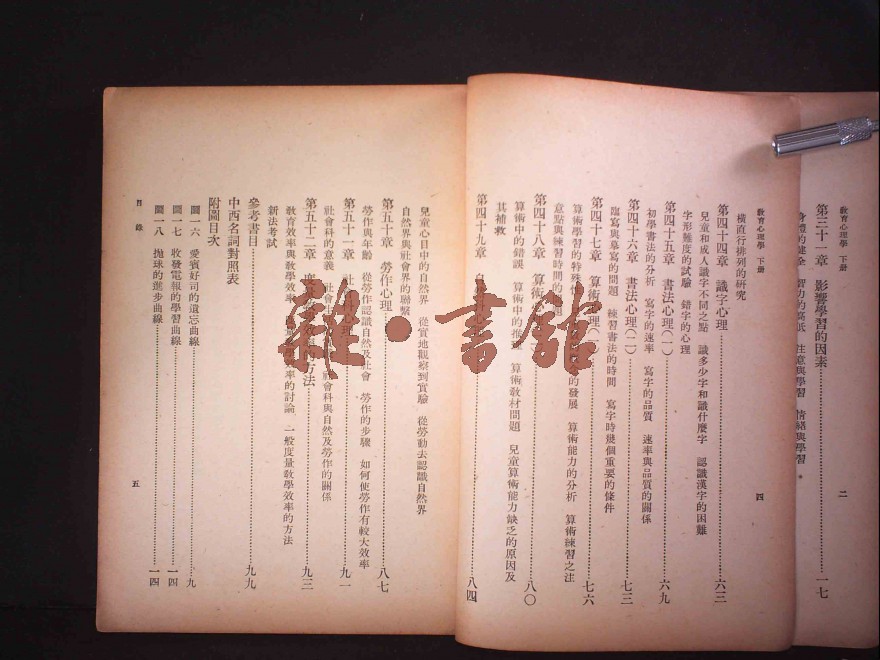 教育心理學 下册
二
第三十一章 影響學習的因素 一七
身體的健全 智力的高低 注意與學習 情緒與學習
教育心理學 下册
四
橫直行排列的研究
第四十四章 識字心理 六三
兒童和成人識字不同之點 識多少字和識什麼字 認識漢字的困難
字形難度的試驗 錯字的心理
第四十五章 書法心理(一) 六九
初學書法的分析 寫字的速率 寫字的品質 速率與品質的關係
第四十六章 書法心理(二) 七三
臨寫與摹寫的問題 練習書法的時間 寫字時幾個重要的條件
第四十七章 算術心理(一) 七六
算術學習的特殊性 的發展 算術能力的分析 算術練習之法
意點與練習時間的問題
第四十八章 算術心 八〇
算術中的錯誤 算術中的推理 算術敎材問題 兒童算術能力缺乏的原因及
其補救
第四十九章 自 八四
兒童心目中的自然界 從實地觀察到實驗 從勞動去認識自然界
自然界與社會界的聯繫
第五十章 勞作心理 八七
勞作與年齡 從勞作認識自然及社會 勞作的步驟 如何使勞作有較大效率
第五十一章 社 心理 九一
社會科的意義 社會 社會科與自然及勞作的關係
第五十二章 度量 的方法 九三
敎育效率與敎學效率 度量敎學效率的討論 一般度量敎學效率的方法
新法考試
參考書目 九九
中西名詞對照表
附圖目次
圖一六 愛賓好司的遺忘曲線 九
圖一七 收發電報的學習曲線 一四
圖一八 拋球的進步曲線 一四
目錄
五
雜·書館